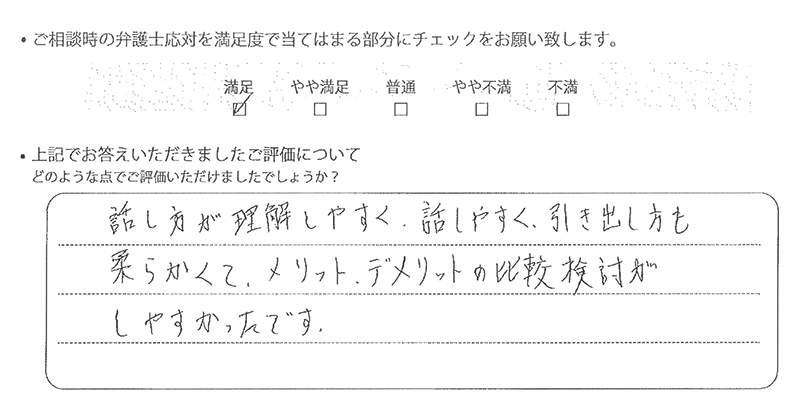 ・ご相談時の弁護士応対を満足度で当てはまる部分にチェックをお願い致します。
満足 やや満足 普通 やや不満 不満
☑ □ □ □ □
・上記でお答えいただきましたご評価について
どのような点でご評価いただけましたでしょうか?
話し方が理解しやすく、話しやすく、引き出し方も
柔らかくて、メリット、デメリットの比較検討が
しやすかったです。